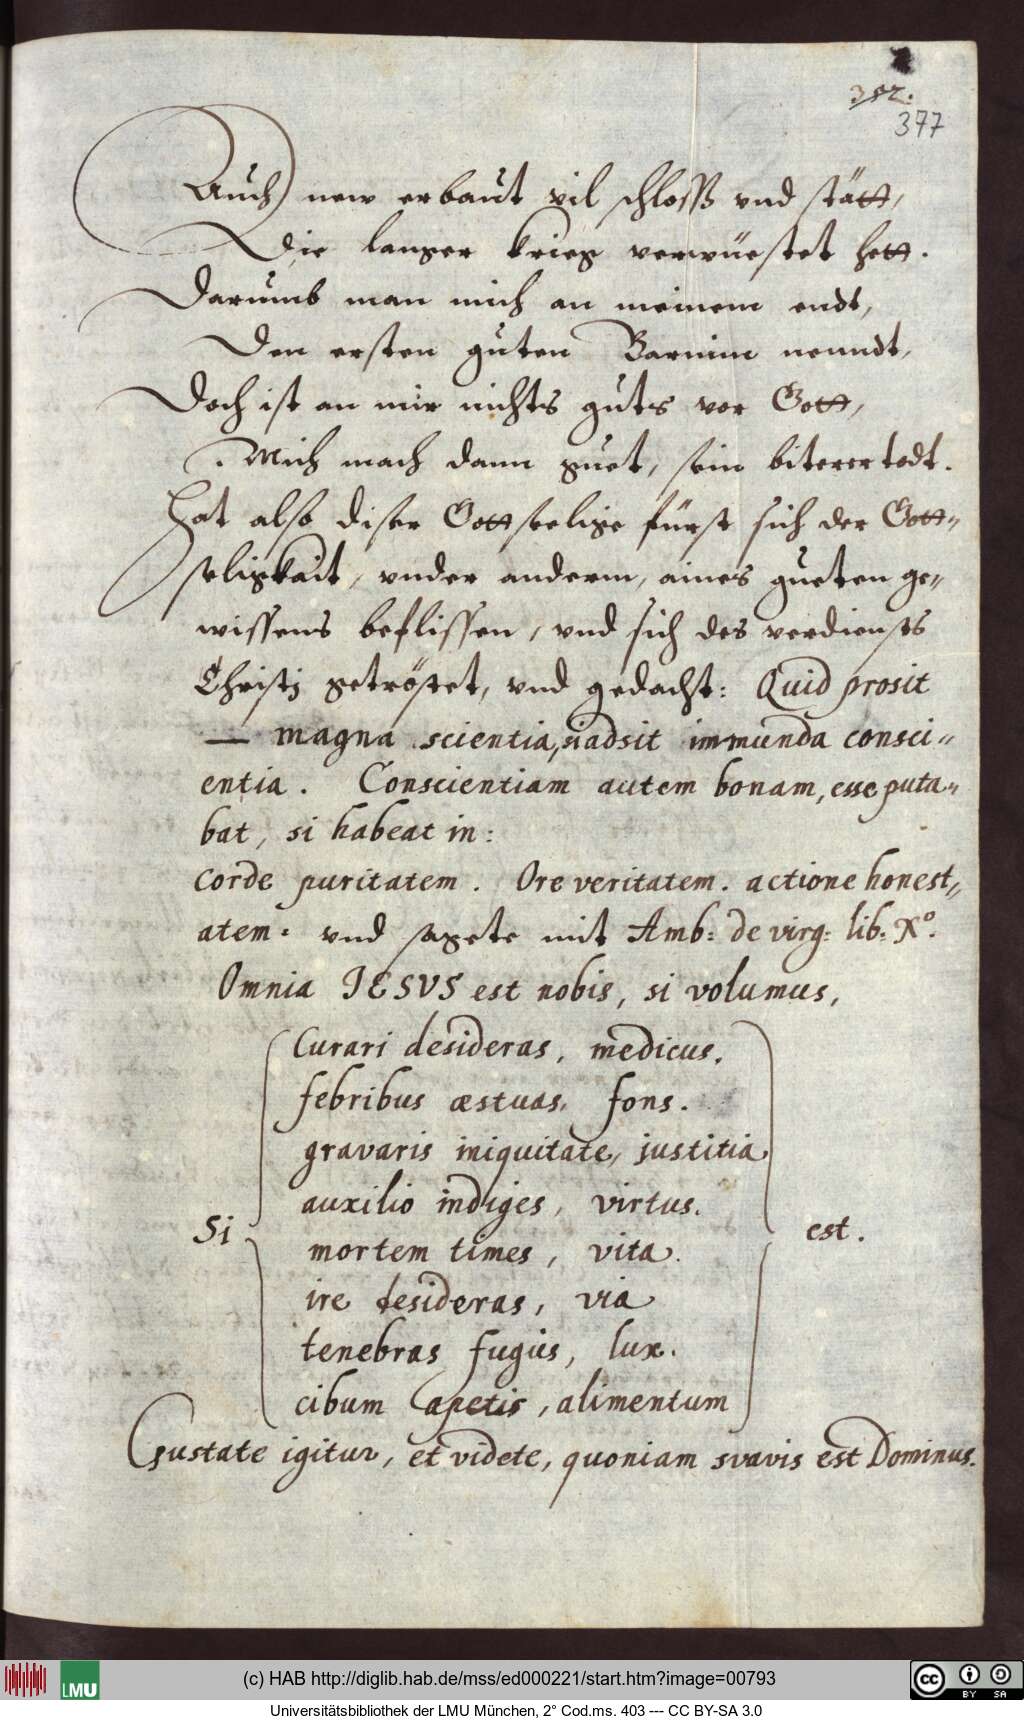 352.
377
Auch new erbaut vil schloss vnd stätt,
Die langer krieg verwüestet hett.
Darumb man mich an meinem endt,
Den ersten guten Barnim nenndt,
Doch ist an mir nichts guts vor Gott,
Mich mach dann guet, sein biterer todt.
Hat also diser Gottseelige fürst sich der Gott„
seligkait, vnder anderm, aines gueten ge„
wissens beflissen, vnd sich des verdiensts
Christj getröstet, vnd gedacht: Quid prosit
— magna scientia, si adsit immunda consci„
entia. Conscientiam autem bonam, esse puta„
bat, si habeat in:
Corde puritatem. Ore veritatem. actione honest„
atem. vnd sagete mit Amb: de virg: lib: Xº.
Omnia JESUS est nobis, si volumus,
Curari desideras, medicus.
febribus æstuas, fons.
gravaris iniquitate, justitia
auxilio indiges, virtus.
Si est.
mortem times, vita.
ire desideras, via
tenebras fugis, lux.
cibum apetis, alimentum
Gustate igitur, et videte, quoniam svavis est Dominus.
LMU
(c) HAB http://diglib.hab.de/mss/ed000221/start.htm?image=00793
cc BY SA
Universitätsbibliothek der LMU München, 2° Cod.ms. 403 --- CC BY-SA 3.0